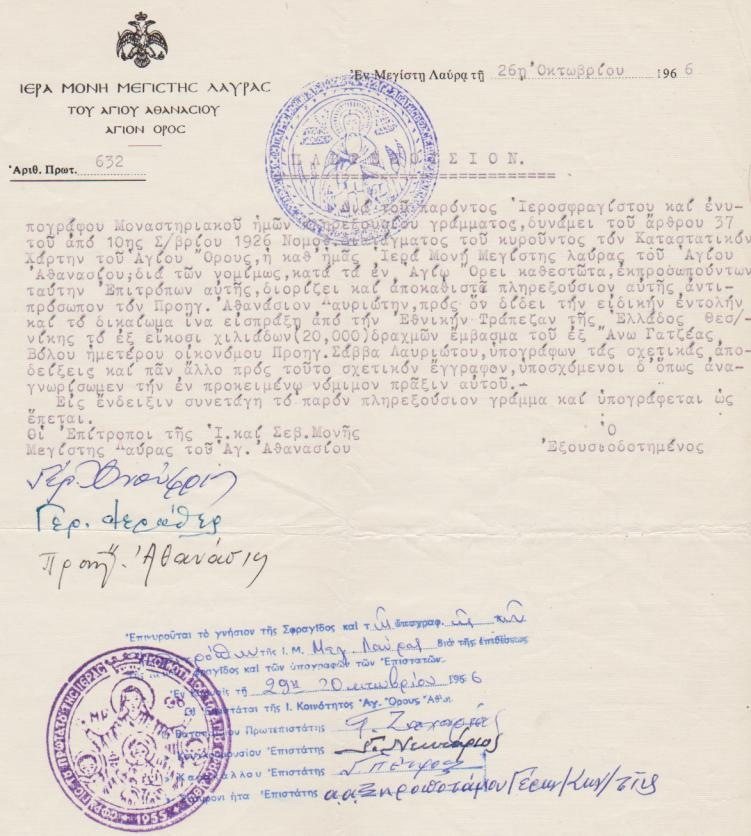 ΙΕΡΑ ΜΟΝΗ ΜΕΓΙΣΤΗΣ ΛΑΥΡΑΣ
ΤΟΥ ΑΓΙΟΥ ΑΘΑΝΑΣΙΟΥ
ΑΓΙΟΝ ΟΡΟΣ
Ἀριθ. Πρωτ. 632
Ἐν Μεγίστῃ Λαύρᾳ τῇ 26η Ὀκτωβρίου 1966
ΠΛΗΡΕΞΟΥΣΙΟΝ.
Διά τοῦ παρόντος Ἱεροσφραγίστου καί ἐνυ-
πογράφου Μοναστηριακοῦ ἡμῶν πληρεξουσίου γράμματος,δυνάμει τοῦ ἄρθρου 37
τοῦ ἀπό 10ης Σ/βρίου 1926 Νομοθ.διατάγματος τοῦ κυροῦντος τόν Καταστατικόν
Χάρτην τοῦ Ἁγίου Ὄρους,ἡ καθ'ἡμᾶς Ἱερά Μονή Μεγίστης λαύρας τοῦ Ἁγίου
Ἀθανασίου;διά τῶν νομίμως,κατά τά ἐν Ἁγίῳ Ὄρει καθεστῶτα,ἐκπροσωπούντων
ταύτην Ἐπιτρόπων αὐτῆς,διορίζει καί ἀποκαθιστᾶ πληρεξούσιον αὐτῆς ἀντι-
πρόσωπον τόν Προηγ.Ἀθανάσιον Λαυριώτην,πρός ὅν δίδει τήν εἰδικήν ἐντολήν
καί τό δικαίωμα ἵνα εἰσπράξῃ ἀπό τήν Ἐθνικήν Τράπεζαν τῆς Ἑλλάδος θεσ/
νίκης τό ἐξ εἴκοσι χιλιάδων(20,000)δραχμῶν ἔμβασμα τοῦ ἐξ Ἄνω Γατζέας
Βόλου ἡμετέρου οἰκονόμου Προηγ.Σάββα Λαυριώτου,ὑπογράφων τάς σχετικάς ἀπο-
δείξεις καί πᾶν ἄλλο πρός τοῦτο σχετικόν ἔγγραφον,ὑποσχόμενοι δ'ὅπως ἀνα-
γνωρίσωμεν τήν ἐν προκειμένῳ νόμιμον πρᾶξιν αὐτοῦ.-
Εἰς ἔνδειξιν συνετάγη τό παρόν πληρεξούσιον γράμμα καί ὑπογράφεται ὡς
ἕπεται.
Οἱ Ἐπίτροποι τῆς Ἱ.καί Σεβ.Μονῆς
Μεγίστης Λαύρας τοῦ Ἁγ.Ἀθανασίου
Ὁ
Ἐξουσιοδοτημένος
Γερ.
Γερ.
Προηγ. Ἀθανάσιος
Ἐπικυροῦται τὸ γνήσιον τῆς Σφραγῖδος καὶ τ ὑπογραφ
τῆς Ἰ. Μ. Μεγ. Λαύρας διὰ τῆς ἐπιθέσεως
καὶ τῶν ὑπογραφῶν τῶν Ἐπιστατῶν.
29η Ὀκτωβρίου 1966
Ἐπιστάται τῆς Ἰ. Κοινότητος Ἁγ. Ὄρους Ἄθω
Πρωτεπιστάτης Γ. Ζαχαρίας
Ἐπιστάτης Γ. Νεκτάριος
Ἐπιστάτης
Ἐπιστάτης
1955